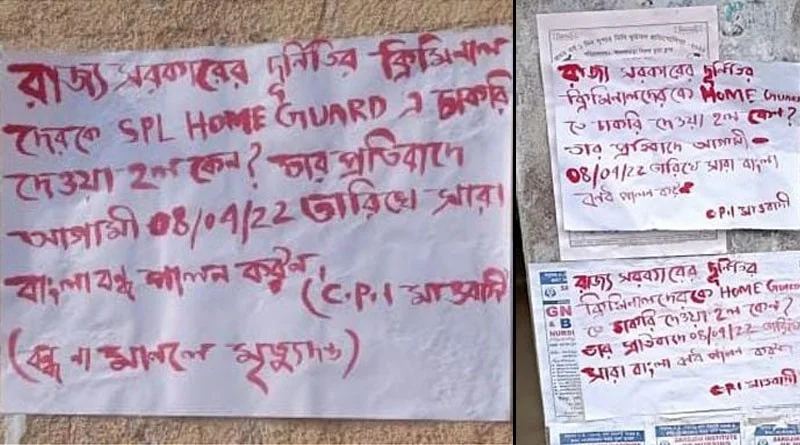 রাজ্য সরকারের দুর্নিতির ক্রিমিনাল
দেরকে SPL HOME GUARD এ চাকরি
দেওয়া হল কেন? তার প্রতিবাদে
আগামী 08/04/22 তারিখে সারা
বাংলা বন্ধ পালন করুন,
(C.P.I মাওবাদী
(বন্ধ না মানলে মৃত্যুদণ্ড)
রাজ্য সরকারের দুর্নিতির
ক্রিমিনালদেরকে HOME GUARD
তে চাকরি দেওয়া হল কেন?
তার প্রতিবাদে আগামী
08/04/22 তারিখে সারা বাংলা
বন্ধ পালন করুন
C.P.I মাওবাদী
রাজ্য সরকারের দুর্নিতির
ক্রিমিনালদেরকে HOME GUARD
তে চাকরি দেওয়া হল কেন?
তার প্রতিবাদে 08/04/22 তারিখে
সারা বাংলা বন্ধ পালন করুন
C.P.I মাওবাদী
GN
& B
NURSI